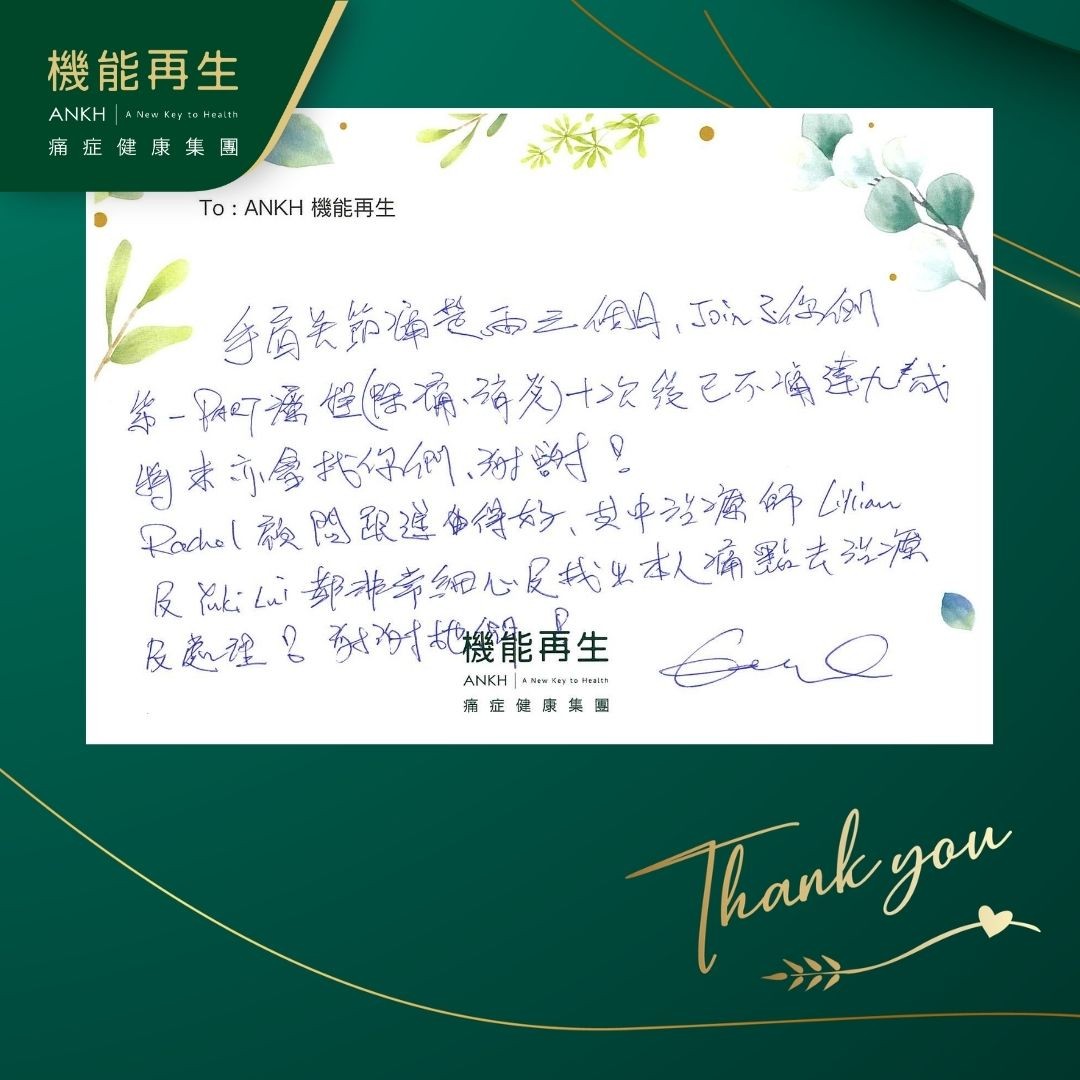 機能再生
ANKH | A New Key to Health
痛症健康集團
To : ANKH 機能再生
手肩关節痛楚兩三個月、Join了你們
第一PART療程(除痛、消炎)十次後已不痛達九成
將来亦會找你們、謝謝！
Rachel 顧問跟進得好、其中治療師 Lillian
及 Yuki Lui 都非常細心及找出本人痛點去治療
及處理！謝謝她們！
機能再生
ANKH | A New Key to Health
痛症健康集團
Thank you